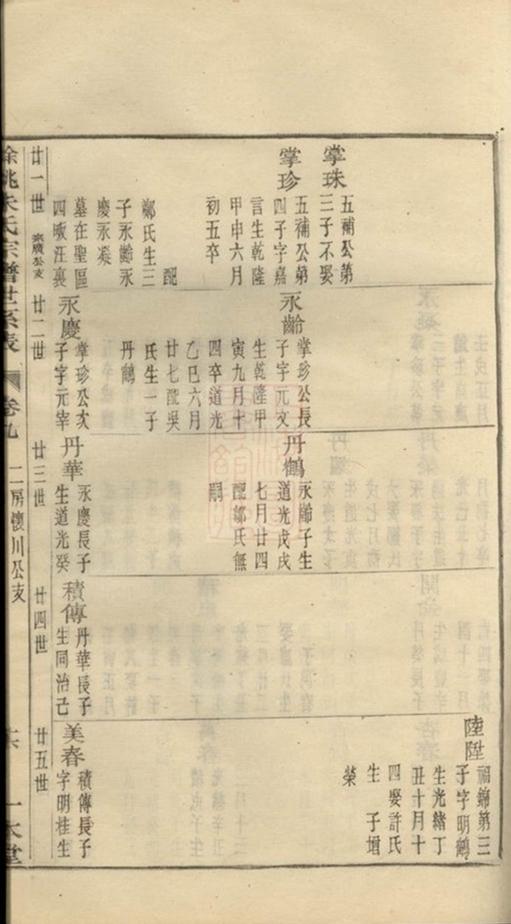 掌珠
五補公第
三子不娶
掌珍
五補公第
四子字嘉
言生乾隆
甲申六月
初五卒
配
鄭氏生三
子永齡永
慶永凝
墓在聖區
四畈汪裏
永齡
掌珍公長
子字元文
生乾隆甲
寅九月十
四卒道光
乙巳六月
廿七配吳
氏生一子
丹鶴
永慶
掌珍公次
子字元宰
丹鶴
永齡子生
道光戊戌
七月廿四
配鄔氏無
嗣
丹華
永慶長子
生道光癸
積傳
丹華長子
生同治己
陸陞
福錦第三
子字明鶴
生光緒丁
丑十月十
四娶許氏
生子壇
榮
美春
積傳長子
字明桂生
廿一世
廿二世
廿三世
廿四世
廿五世
餘姚朱氏宗譜世系表
卷九
二房懷川公支
一本堂